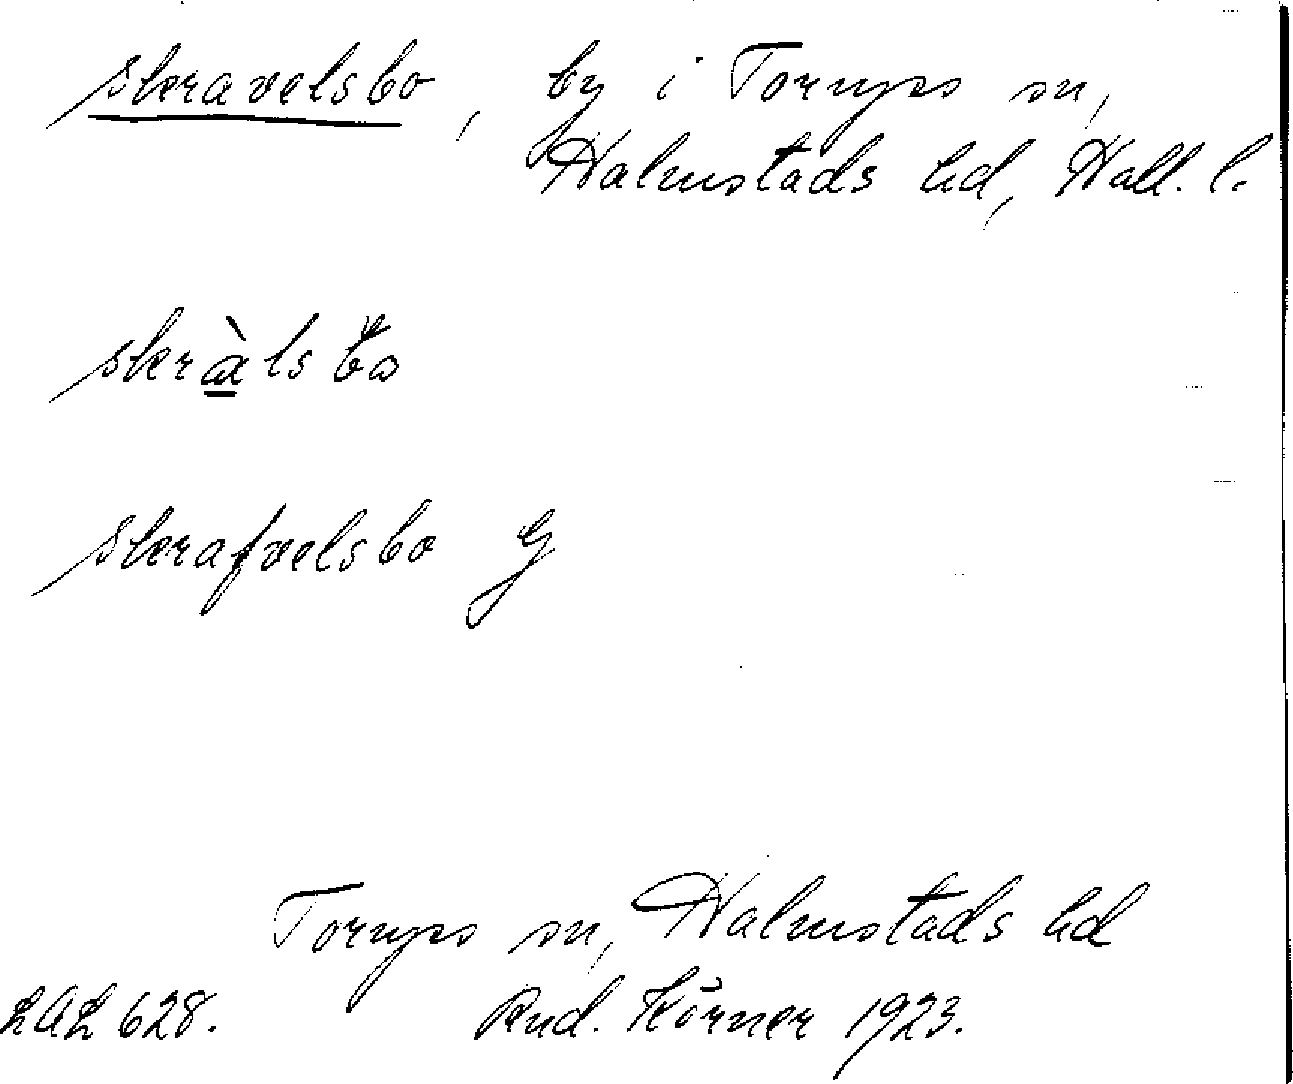 Skravelsbo, by i Tornyss sn,
Halmstads hd, Hall. l.
skràlsbo
Skrafvelsbo G
Tornyss sn, Halmstads hd
LAL 628. Rud. Körner 1923.